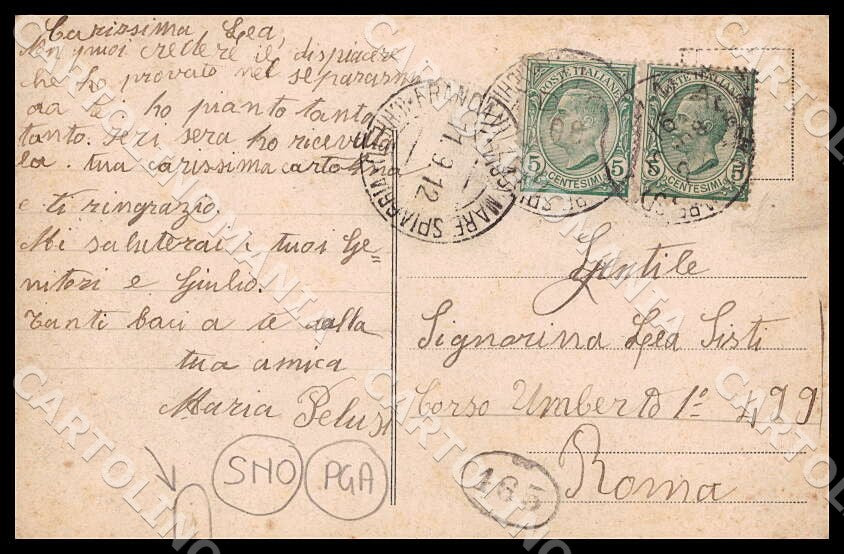 Carissima Lea,
Non puoi credere il dispiacere
che ho provato nel separarmi
da te ho pianto tanto
tanto. Ieri sera ho ricevuta
la tua carissima cartolina
e ti ringrazio.
Mi saluterai i tuoi Ge"
nitori e Giulio.
Tanti baci a te dalla
tua amica
Maria Pelusi
SNO
PGA
POSTE ITALIANE
5 5
CENTESIMI
POSTE ITALIANE
5 5
CENTESIMI
MARE SPIAGGIA
1.9.12
Gentile
Signorina Lea Sisti
Corso Umberto 1º 499
Roma
165
CARTOLINOMANIA